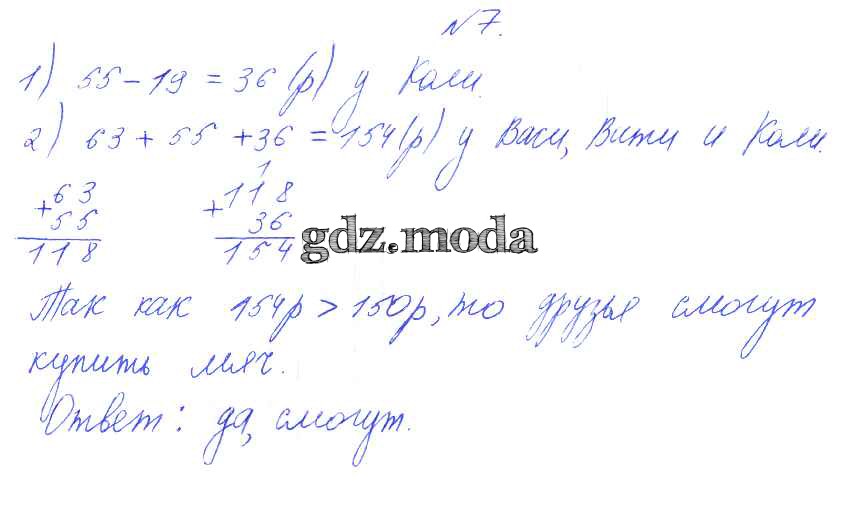 №7.
1) 55 - 19 = 36 (р) у Коли.
2) 63 + 55 + 36 = 154 (р) у Васи, Вити и Коли.
1
+63 +118
55 36
118 154
gdz.moda
Так как 154р > 150р, то друзья смогут
купить мяч.
Ответ: да, смогут.